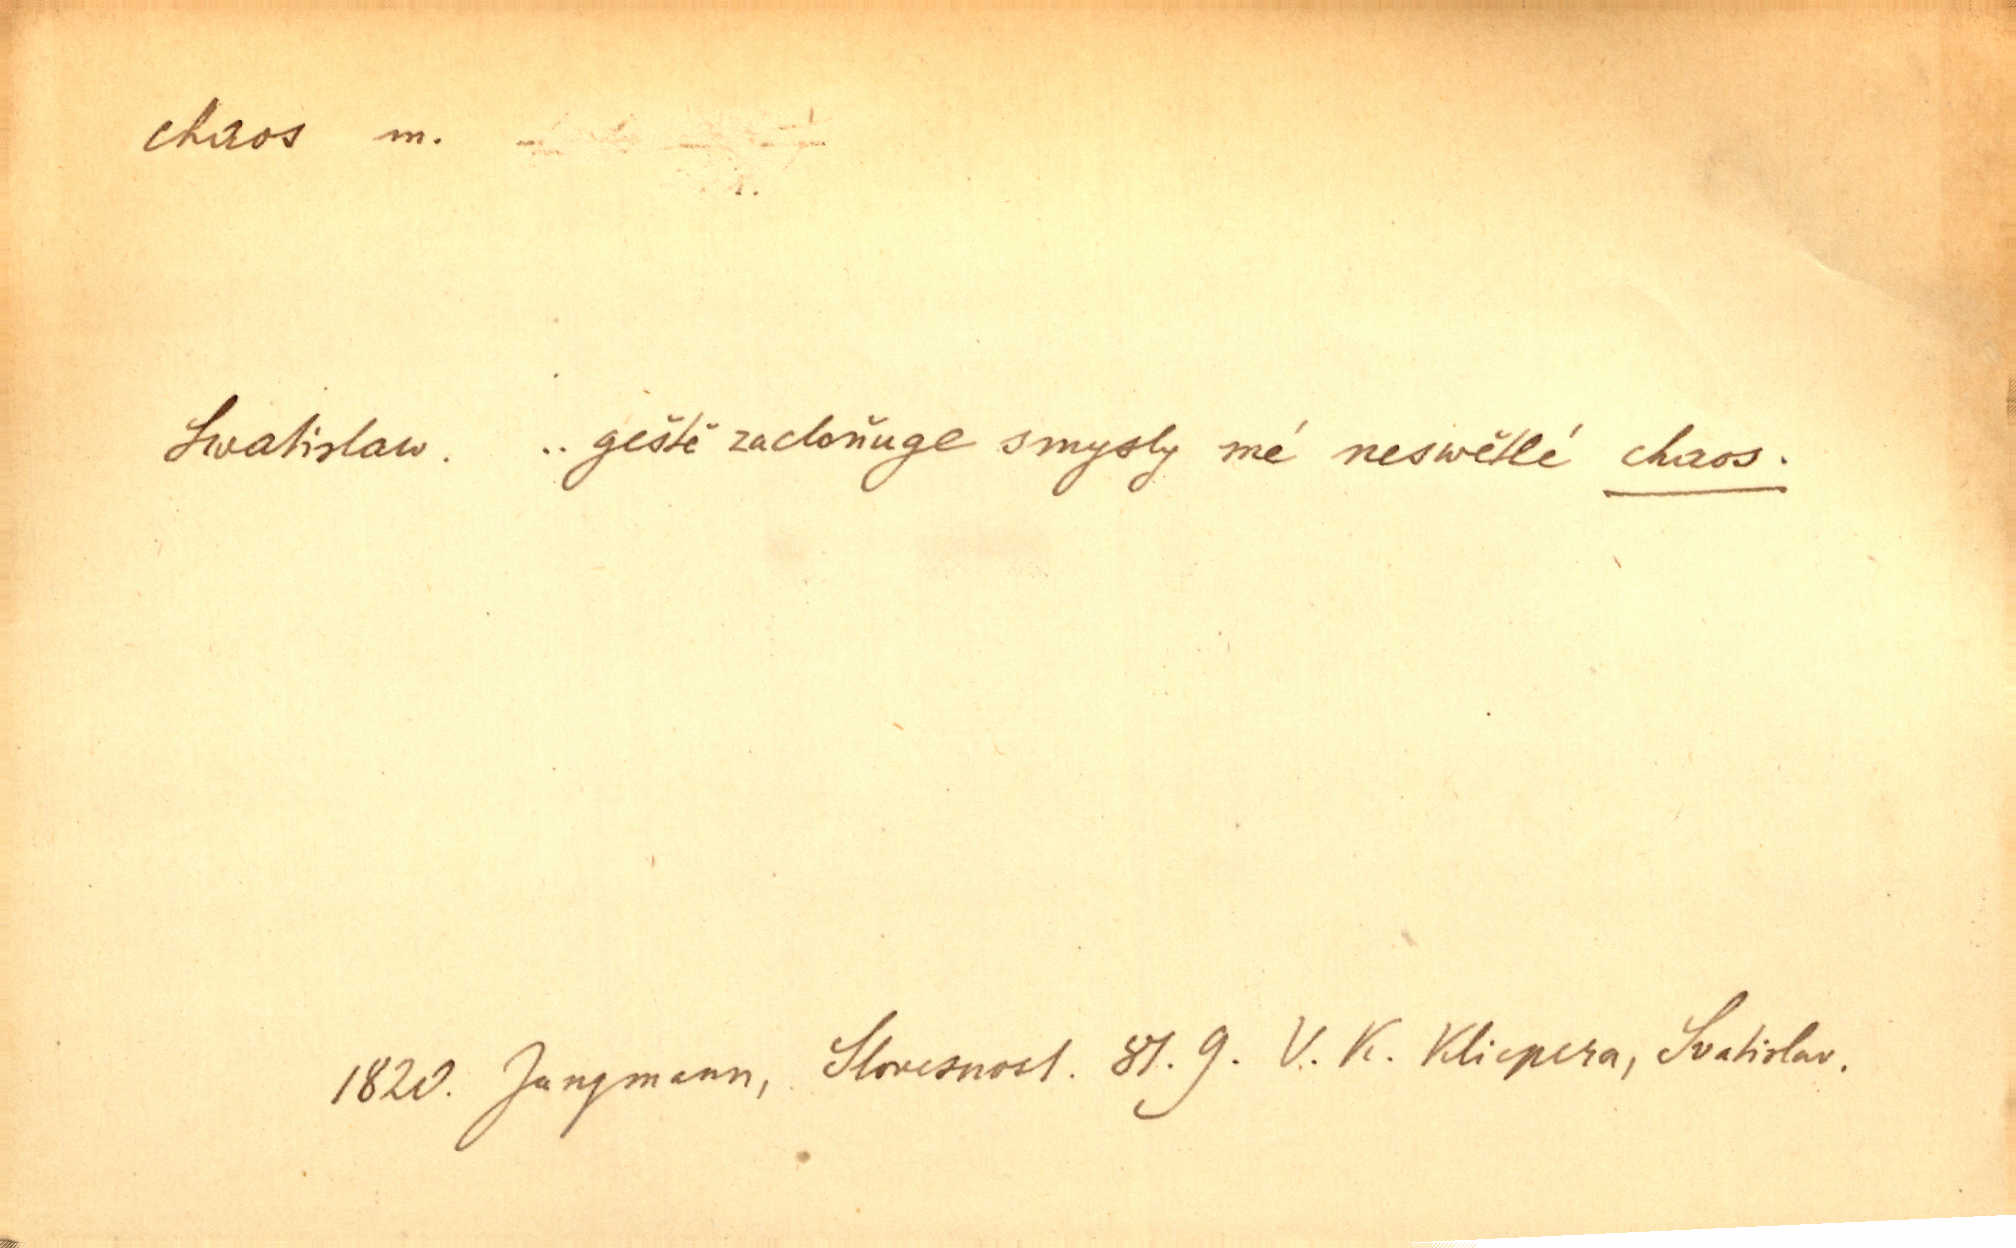 chaos m.
Swatislaw. .. geště zacloňuge smysly mé neswětlé chaos.
1820. Jungmann, Slovesnost. 81. 9. V. K. Klicpera, Svatislav.